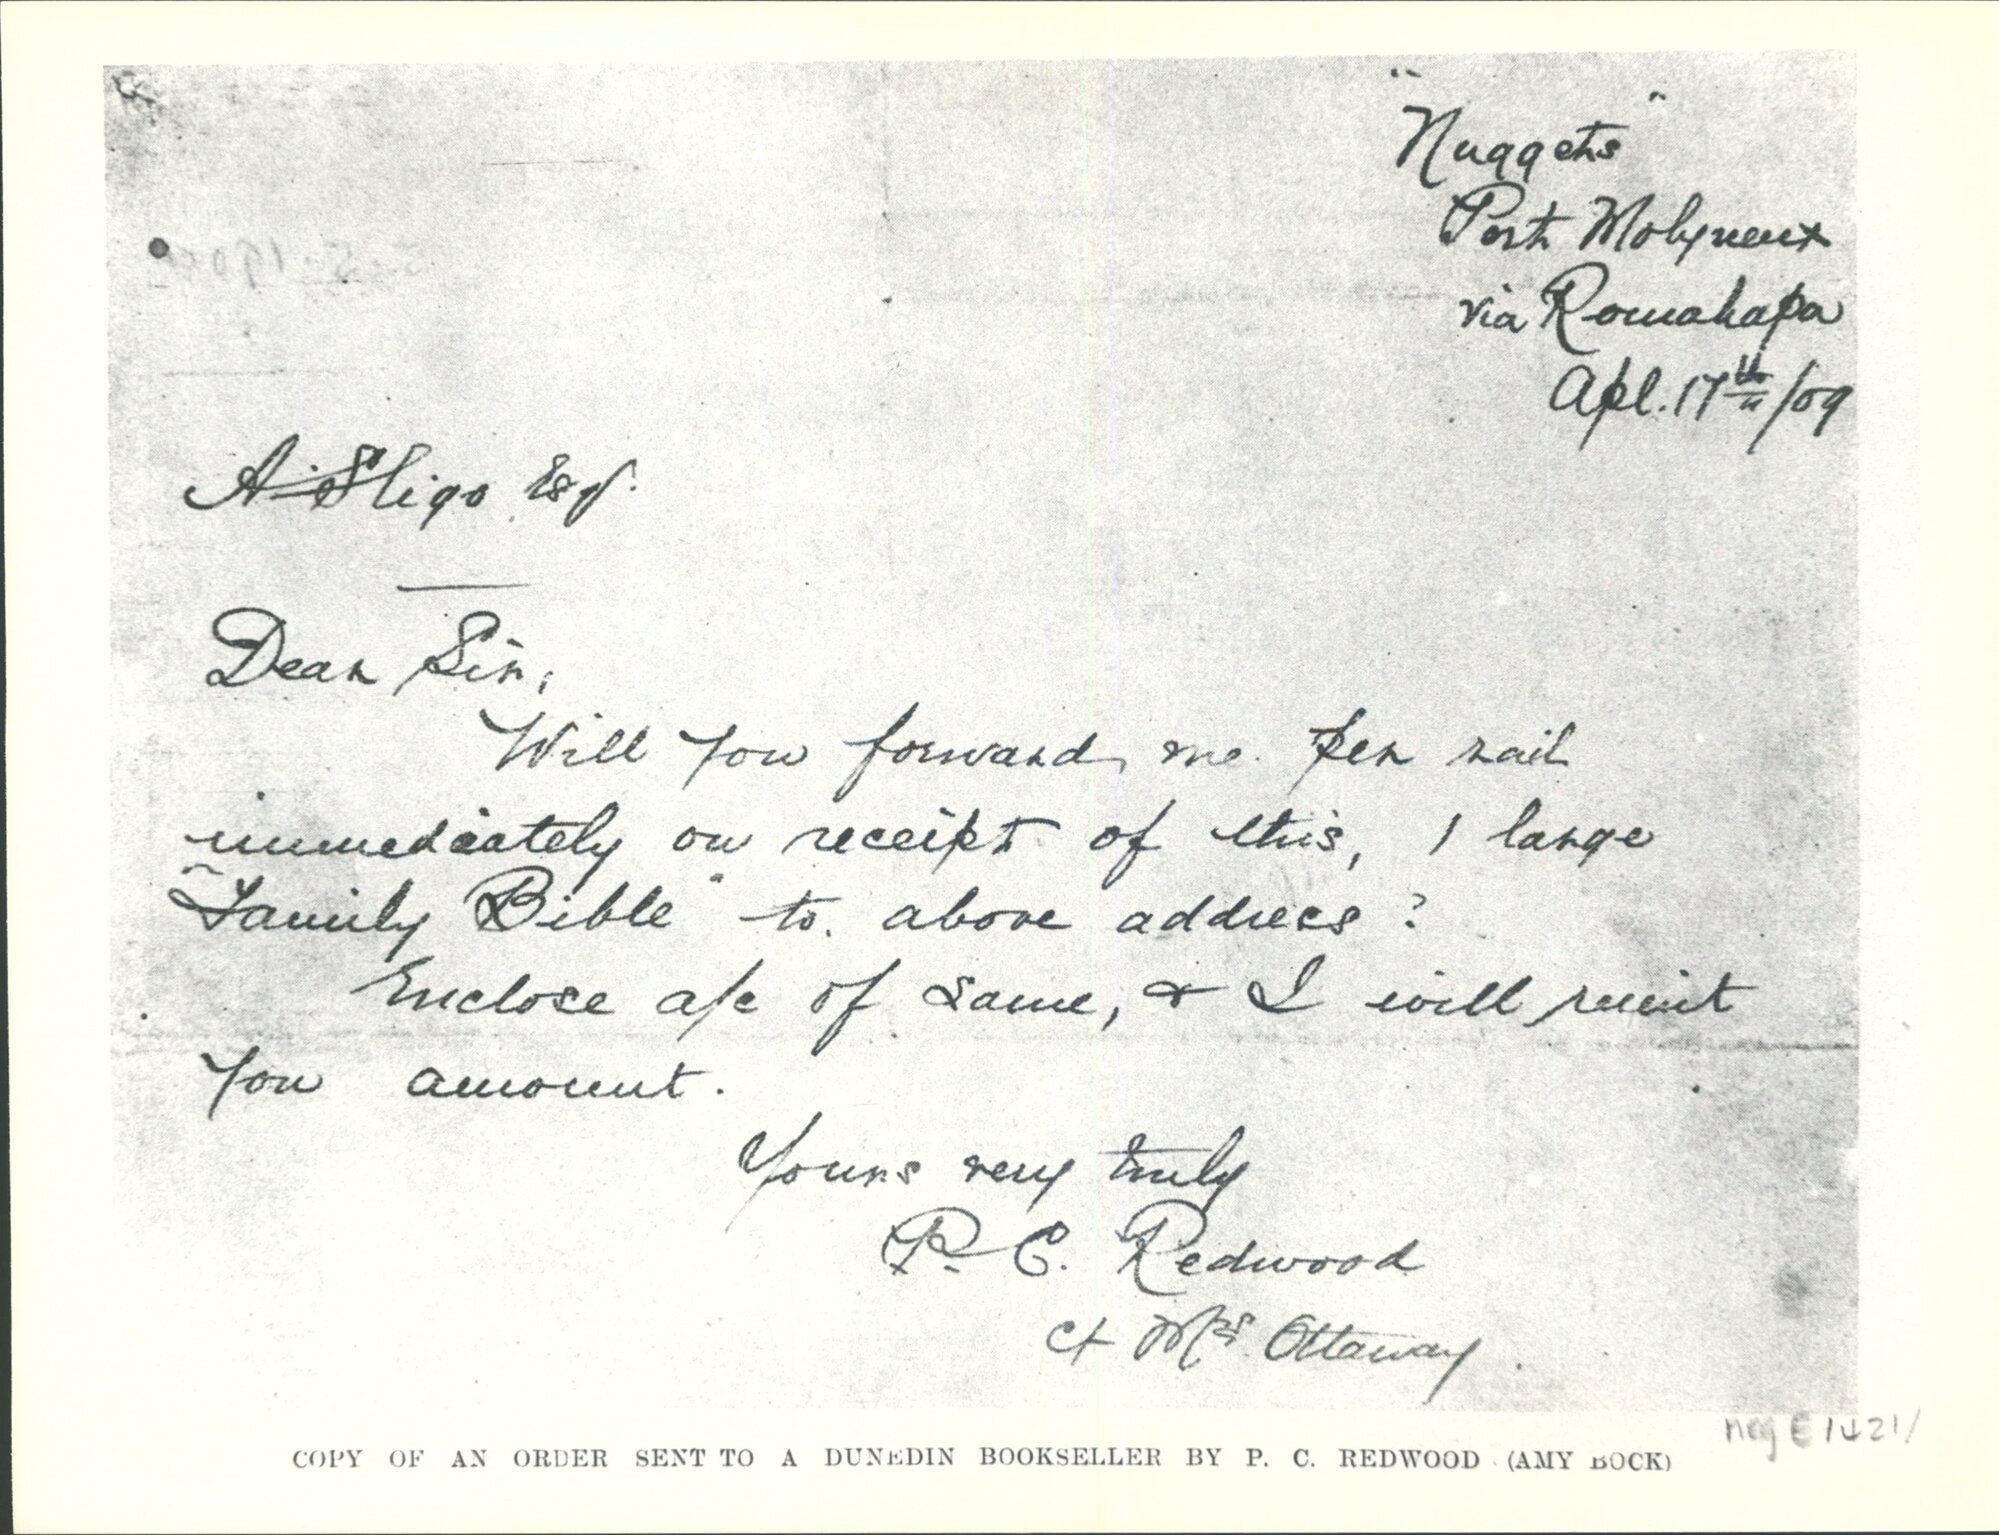 "Nuggets"
Port Molyneux
via Romahapa
Apl. 17th /09
A. Sligo Esq.
Dear Sir,
Will you forward me per rail
immediately on receipt of this, 1 large
"Family Bible" to above address?
Enclose a/c of same, & I will remit
you amount.
Yours very truly
P. C. Redwood
c/ Mrs. Ottaway.
neg E 1421/
COPY OF AN ORDER SENT TO A DUNEDIN BOOKSELLER BY P. C. REDWOOD (AMY BOCK)